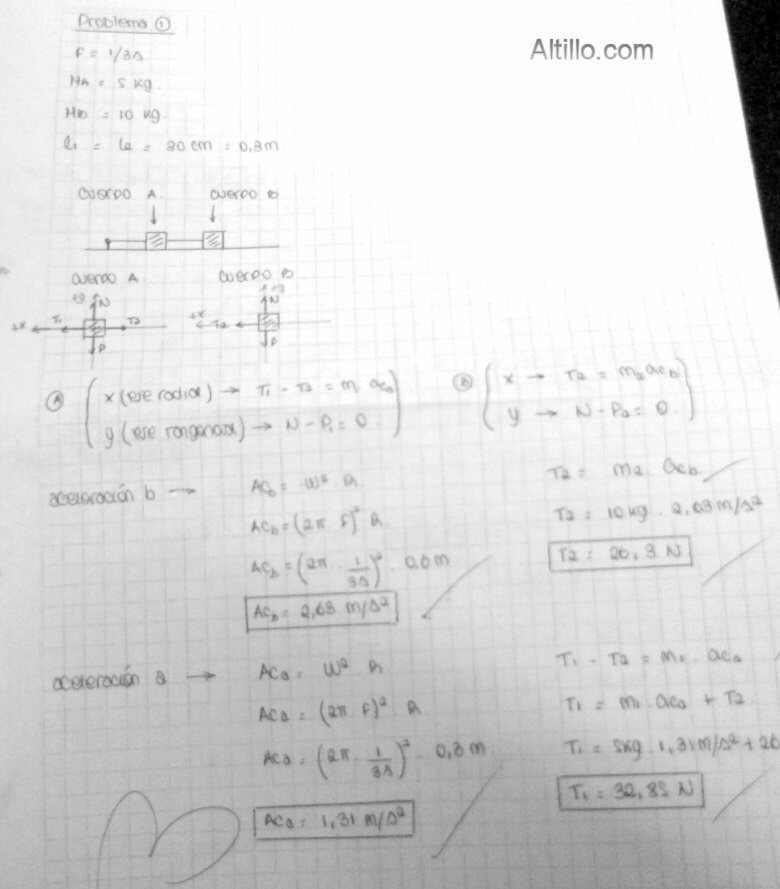 Problema ①
Altillo.com
F = 1/3s
MA = 5 kg.
MB = 10 kg.
l1 = l2 = 30 cm = 0,3m
cuerpo A
cuerpo B
cuerpo A
cuerpo B
+y
N
+x
T1
T2
P
+y
N
+x
T2
P
Ⓐ
x (eje radial) → T1 - T2 = m1 aca
y (eje tangencial) → N - P1 = 0
Ⓑ
x → T2 = m2 acb
y → N - P2 = 0.
aceleración b →
Acb = W² R
Acb = (2π F)² R
Acb = (2π . 1/3s)² . 0,6m
Acb = 2,63 m/s²
T2 = m2 . acb
T2 = 10 kg . 2,63 m/s²
T2 = 26,3 N
aceleración a →
Aca = W² R
Aca = (2π F)² R
Aca = (2π . 1/3s)² . 0,3m
Aca = 1,31 m/s²
T1 - T2 = m1 . aca
T1 = m1 aca + T2
T1 = 5kg . 1,31 m/s² + 26
T1 = 32,85 N